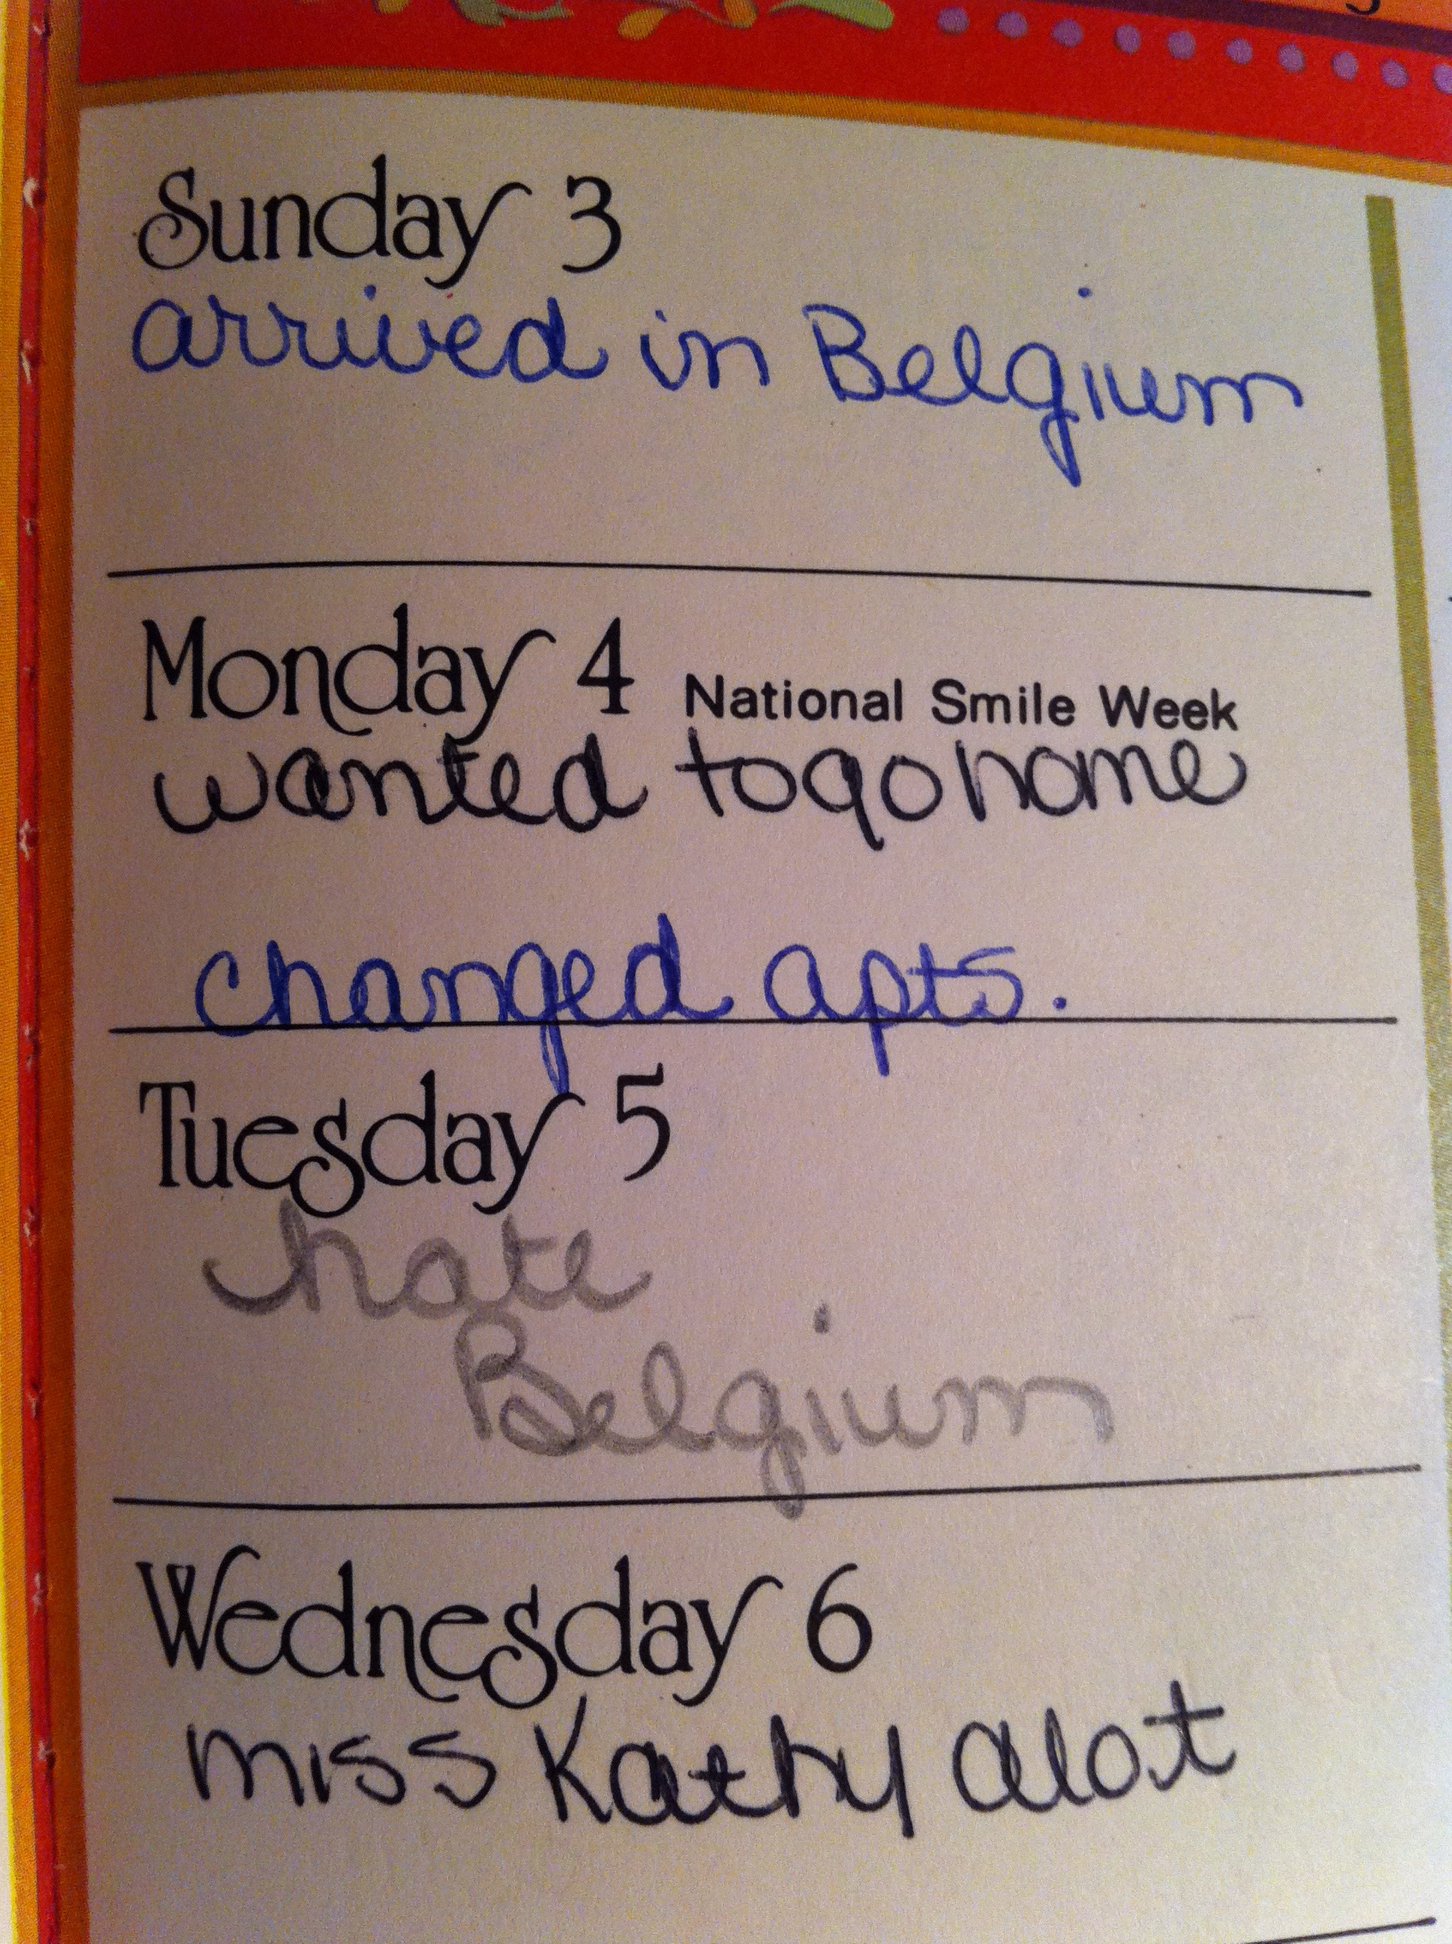 Sunday 3
arrived in Belgium
Monday 4 National Smile Week
wanted to go home
changed apts.
Tuesday 5
hate
Belgium
Wednesday 6
miss Kathy alot